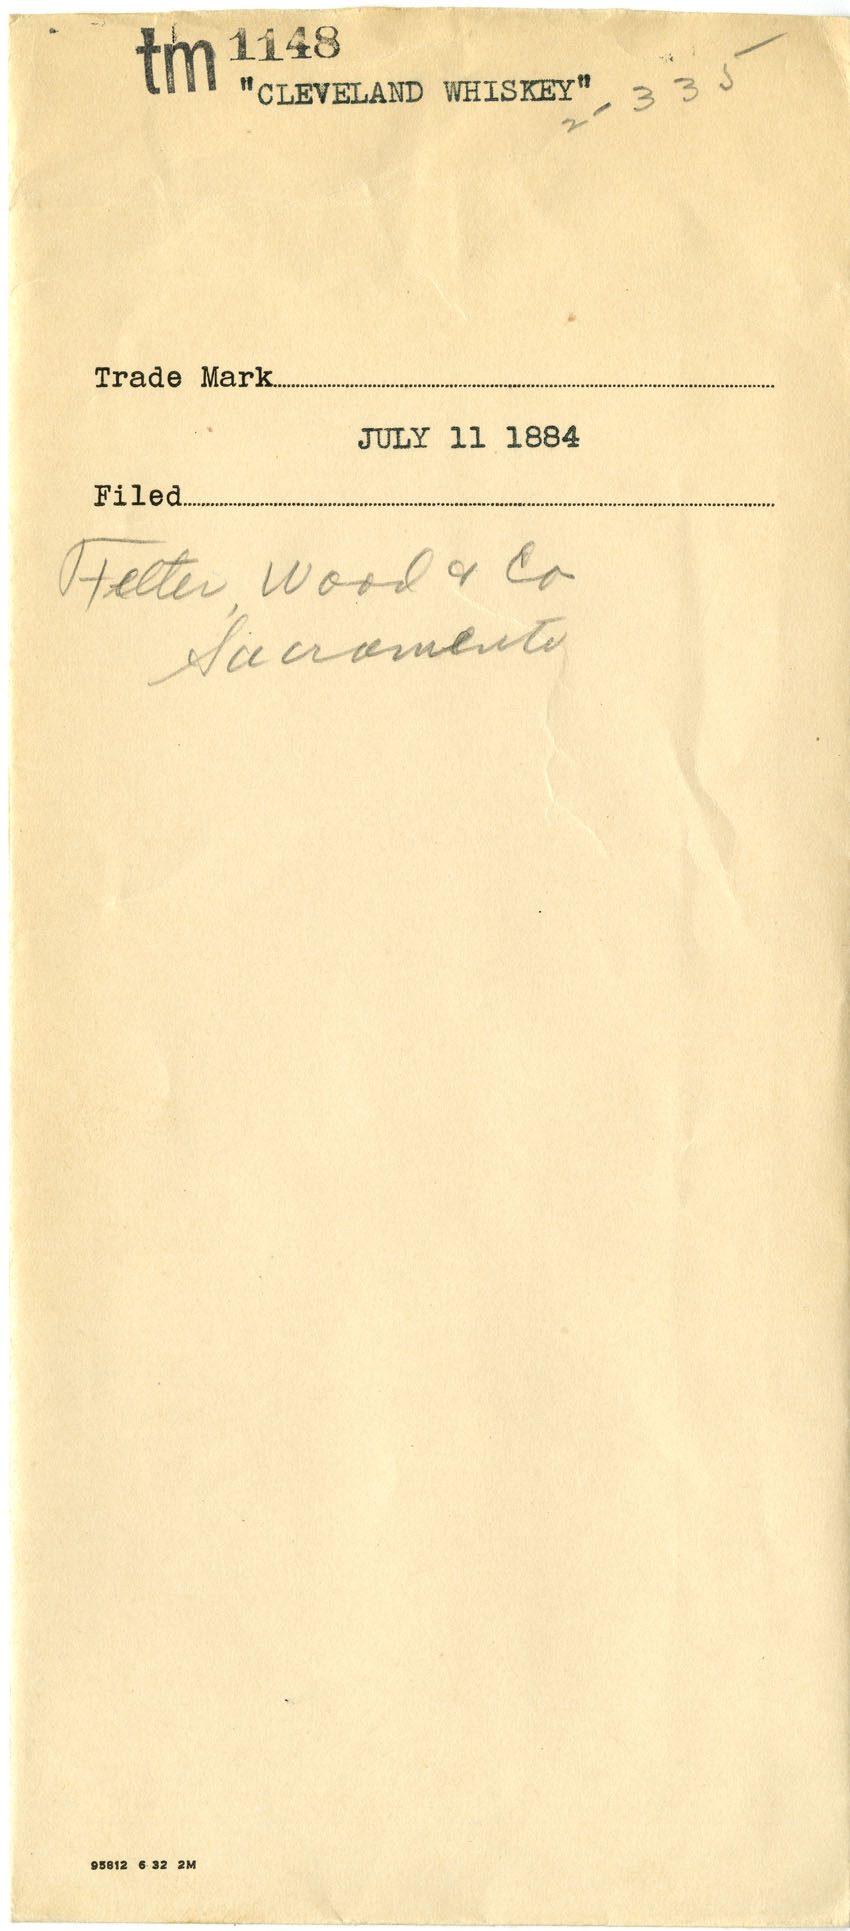 tm 1148
"CLEVELAND WHISKEY"
2-335
Trade Mark
JULY 11 1884
Filed
Felter, Wood & Co
Sacramento
95812 6 32 2M